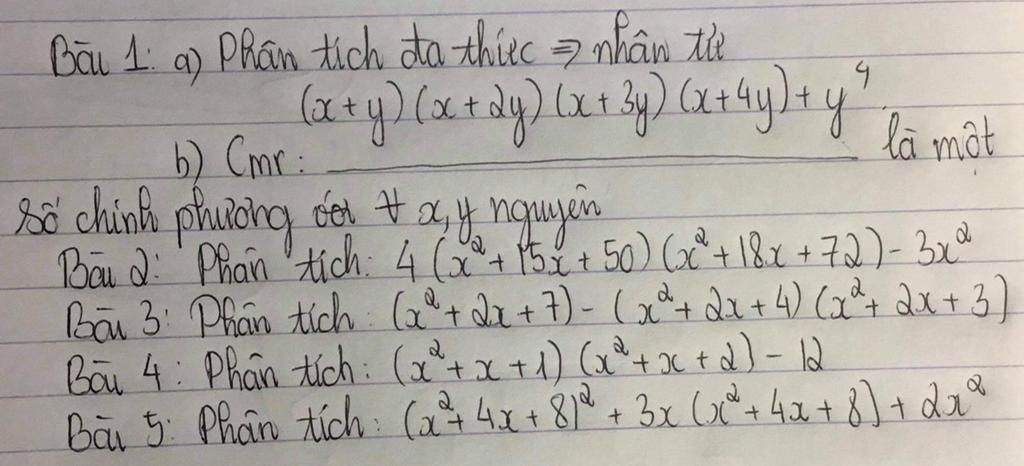 Bài 1: a) Phân tích đa thức ⇒ nhân tử
(x+y)(x+2y)(x+3y)(x+4y)+y⁴
b) Cmr: ________________ là một
số chính phương với ∀ x,y nguyên
Bài 2: Phân tích: 4(x²+15x+50)(x²+18x+72)-3x²
Bài 3: Phân tích: (x²+2x+7)-(x²+2x+4)(x²+2x+3)
Bài 4: Phân tích: (x²+x+1)(x²+x+2)-12
Bài 5: Phân tích: (x²+4x+8)²+3x(x²+4x+8)+2x²